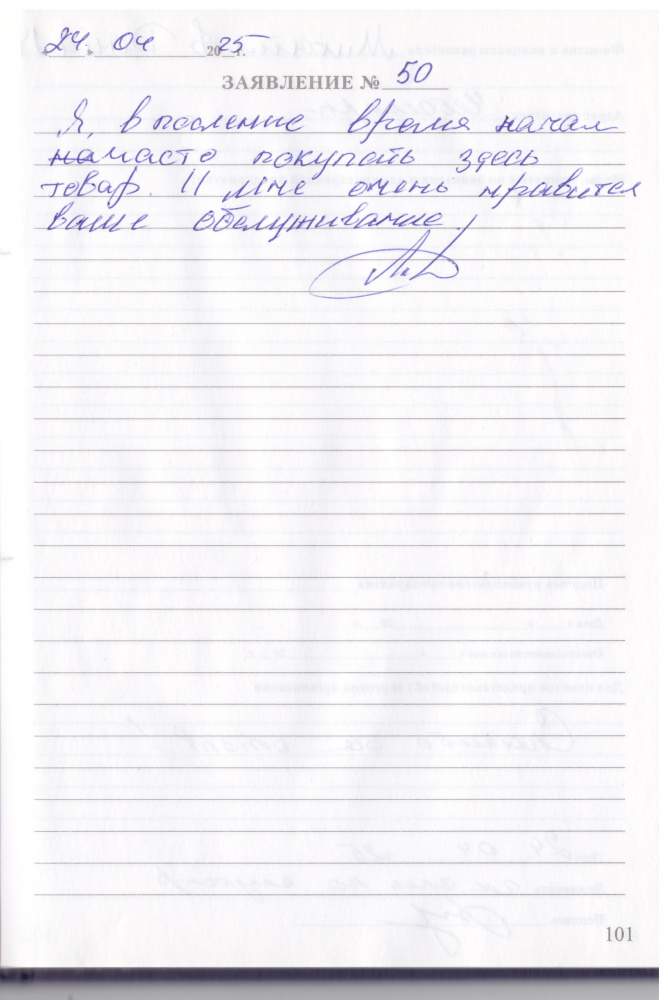 24. 04 2025 г.
ЗАЯВЛЕНИЕ № 50
Я, в последние время начал
часто покупать здесь
товар. И мне очень нравится
ваше обслуживание.
101